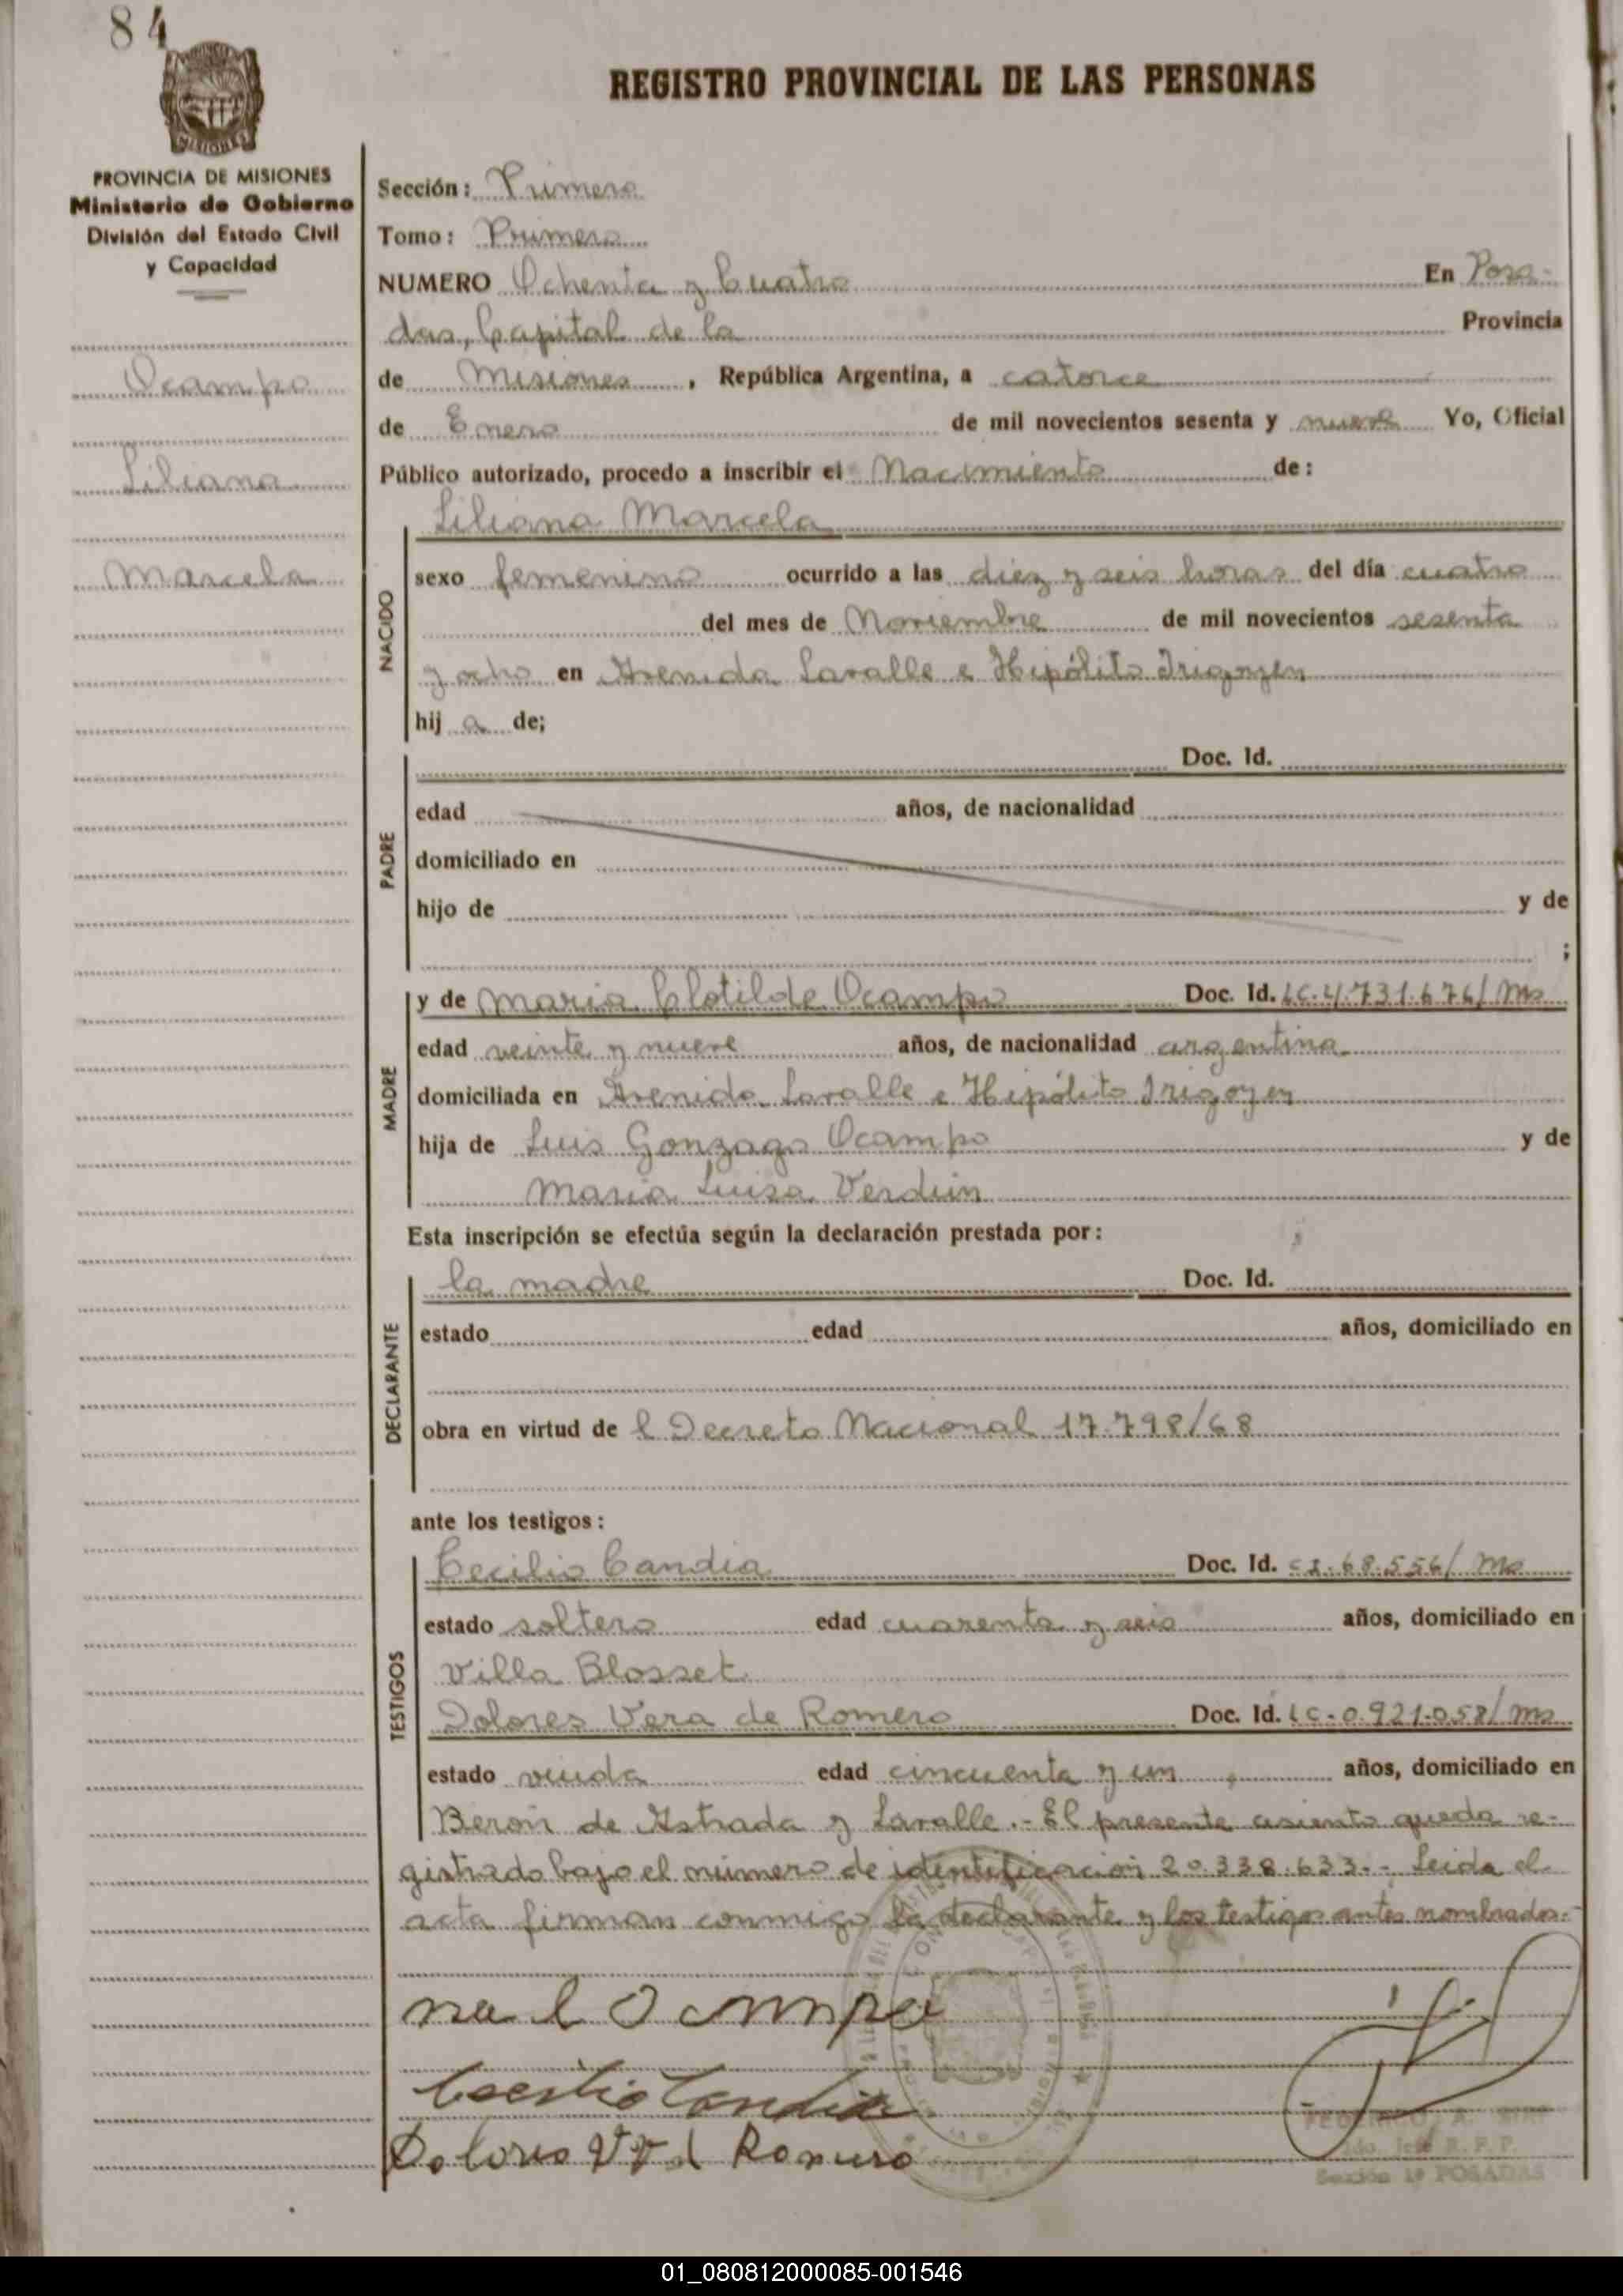 84
REGISTRO PROVINCIAL DE LAS PERSONAS
PROVINCIA DE MISIONES
Ministerio de Gobierno
División del Estado Civil
y Capacidad
Ocampo
Liliana
Marcela
Sección: Primera
Tomo: Primero
NUMERO Ochenta y Cuatro En Posa-
das, Capital de la Provincia
de Misiones, República Argentina, a catorce
de Enero de mil novecientos sesenta y nueve Yo, Oficial
Público autorizado, procedo a inscribir el Nacimiento de:
Liliana Marcela
NACIDO
sexo femenino ocurrido a las diez y seis horas del día cuatro
del mes de Noviembre de mil novecientos sesenta
y ocho en Avenida Lavalle e Hipólito Irigoyen
hij a de;
PADRE
Doc. Id.
edad años, de nacionalidad
domiciliado en
hijo de y de
;
MADRE
y de Maria Clotilde Ocampo Doc. Id. LC.4.731.676/Ms
edad veinte y nueve años, de nacionalidad argentina
domiciliada en Avenida Lavalle e Hipólito Irigoyen
hija de Luis Gonzaga Ocampo y de
Maria Luisa Verdún
Esta inscripción se efectúa según la declaración prestada por:
DECLARANTE
la madre Doc. Id.
estado edad años, domiciliado en
obra en virtud de l Decreto Nacional 17.798/68
ante los testigos:
TESTIGOS
Cecilio Candia Doc. Id. CI.68.556/Ms
estado soltero edad cuarenta y seis años, domiciliado en
Villa Blosset
Dolores Vera de Romero Doc. Id. LC.0.921.058/Ms
estado viuda edad cincuenta y un años, domiciliado en
Beron de Astrada y Lavalle.- El presente asiento queda re-
gistrado bajo el número de identificación 20.338.633.- Leida el
acta firman conmigo la declarante y los testigos antes nombrados.-
Ocampo
Cecilio Candia
Dolores V V d Romero
R. P. P.
Sección 1ª POSADAS
01_080812000085-001546